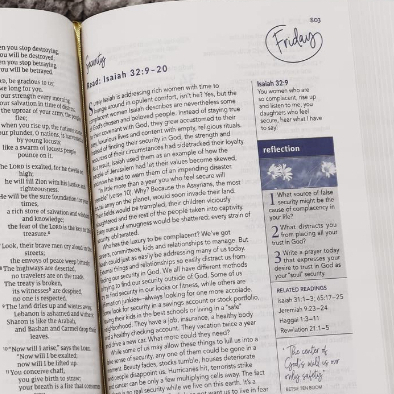 en you stop destroying,
you will be destroyed.
en you stop betraying,
you will be betrayed.
be gracious to us;
we long for you.
our strength every morning
our salvation in time of distress.
flee;
when you rise up, the nations
your plunder, O nations, is harvested
by young locusts;
like a swarm of locusts people
pounce on it.
The LORD is exalted, for he dwells on
high;
he will fill Zion with his justice and
righteousness.
He will be the sure foundation for your
times,
a rich store of salvation and wisdom
and knowledge;
the fear of the LORD is the key to this
treasure.
Look, their brave men cry aloud in the
streets;
the envoys of peace weep bitterly.
The highways are deserted,
no travelers are on the roads.
The treaty is broken,
its witnesses are despised,
no one is respected.
The land dries up and wastes away,
Lebanon is ashamed and withers;
Sharon is like the Arabah,
and Bashan and Carmel drop their
leaves.
"Now will I arise," says the LORD.
"Now will I be exalted;
now will I be lifted up.
You conceive chaff,
you give birth to straw;
your breath is a fire that consumes
503
Friday
Security
Read: Isaiah 32:9–20
Isaiah is addressing rich women with time to
lounge around in opulent comfort, isn't he? Yes, but the
women Isaiah describes are nevertheless some
of God's chosen and beloved people. Instead of staying true
covenant with God, they grew accustomed to their
luxurious lives and content with empty, religious rituals.
finding their security in God, the strength and
of their circumstances had sidetracked their loyalty
result, Isaiah used them as an example of how the
of Jerusalem had let their values become skewed,
he had to warn them of an impending disaster.
"In little more than a year you who feel secure will
tremble" (v. 10). Why? Because the Assyrians, the most
on the planet, would soon invade their land.
fields would be trampled, their children viciously
and the rest of the people taken into captivity.
ounce of smugness would be shattered; every strain of
security obliterated.
Who has the luxury to be complacent? We've got
careers, committees, kids and relationships to manage. But
could just as easily be addressing many of us today.
things and relationships so easily distract us from
our security in God. We all have different methods
to find our security outside of God. Some of us
in our looks or fitness, while others are
junkies—always looking for one more accolade.
look for security in a savings account or stock portfolio,
their kids in the best schools or living in a "safe"
neighborhood. They have a job, insurance, a healthy body
and a healthy checking account. They vacation twice a year
and drive a new car. What more could they need?
While some of us may allow these things to lull us into a
sense of security, any one of them could be gone in a
moment. Beauty fades, stocks tumble, houses deteriorate
and people disappoint us. Hurricanes hit, terrorists strike
and cancer can be only a few multiplying cells away. The fact
no real security while we live on this earth. It's a
want us to live in fear
Isaiah 32:9
You women who are
so complacent, rise up
and listen to me; you
daughters who feel
secure, hear what I have
to say!
reflection
1 What source of false
security might be the
cause of complacency in
your life?
2 What distracts you
from placing all your
trust in God?
3 Write a prayer today
that expresses your
desire to trust in God as
your true security.
RELATED READINGS
Isaiah 31:1–3; 45:17–25
Jeremiah 9:23–24
Haggai 1:3–11
Revelation 21:1–5
"The center of
God's will is our
only safety."
BETSIE TEN BOOM